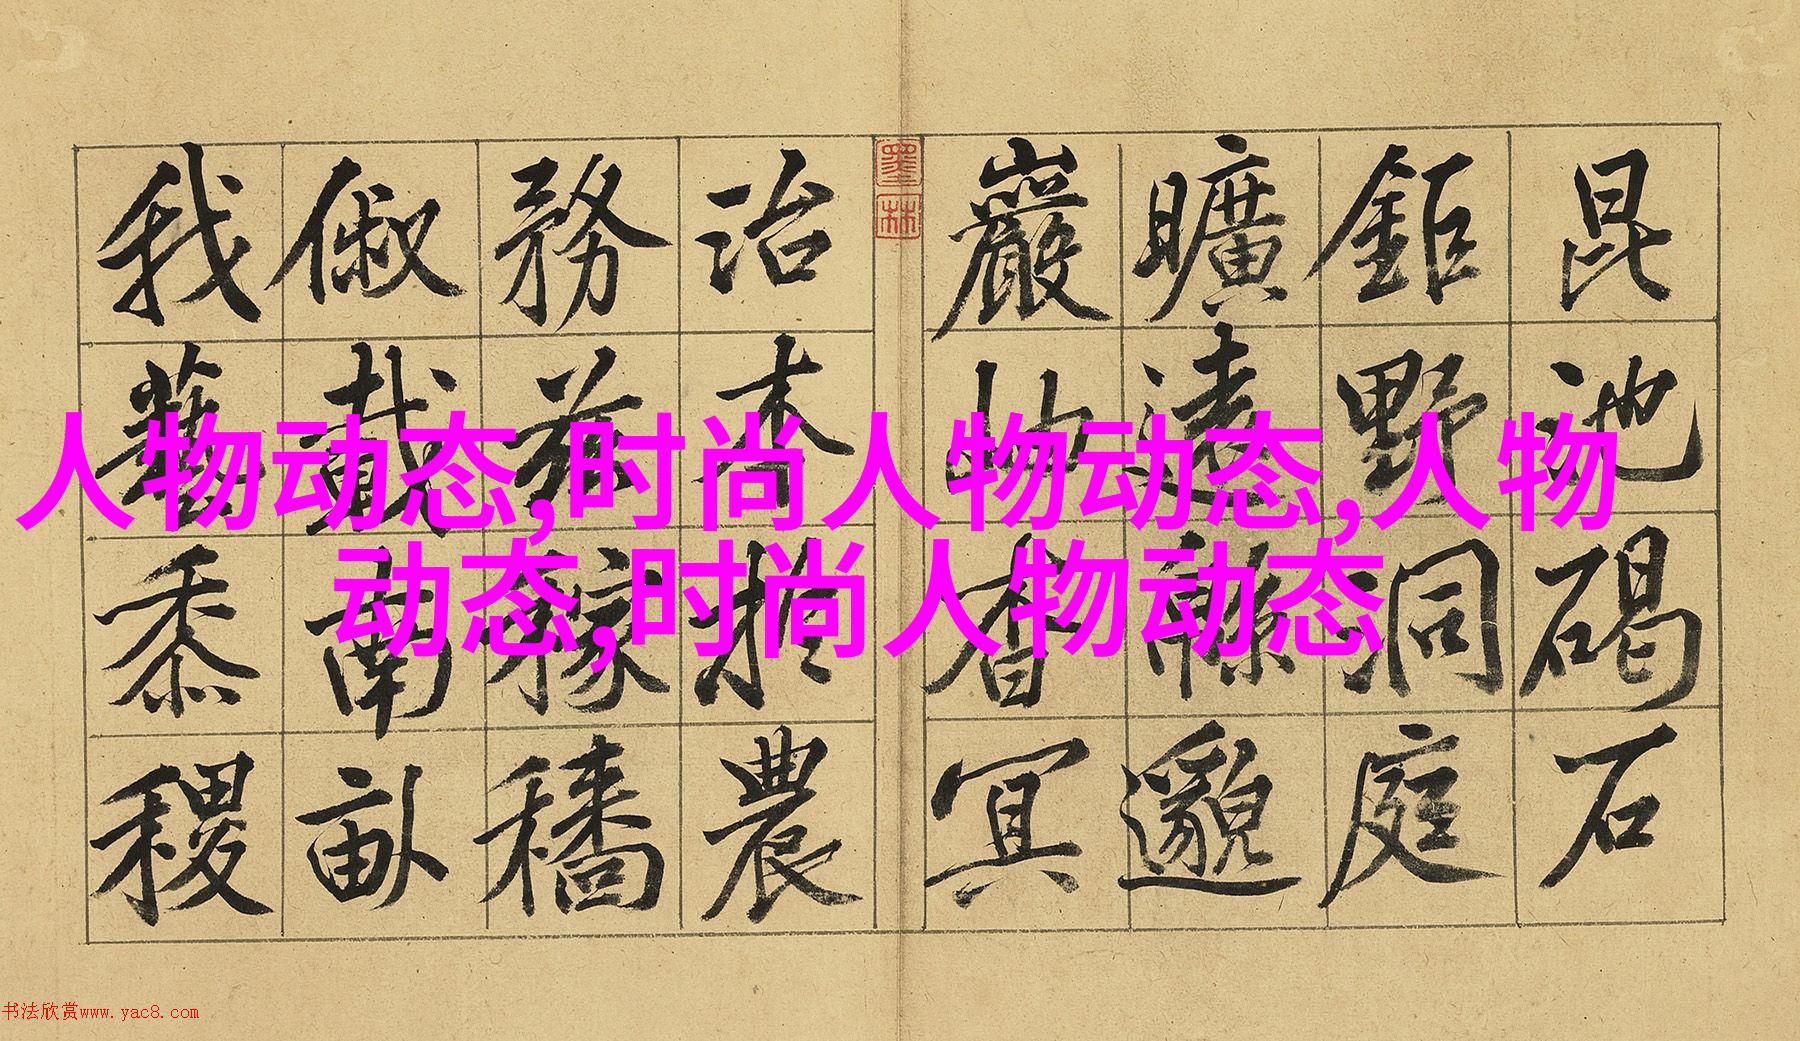 昆池碣石
鉅野洞庭
曠遠緜邈
巖岫杳冥
墨林
治本於農
務茲稼穡
俶載南畝
我藝黍稷
人物动态,时尚人物动态,人物
动态,时尚人物动态
书法欣赏www.yac8.com